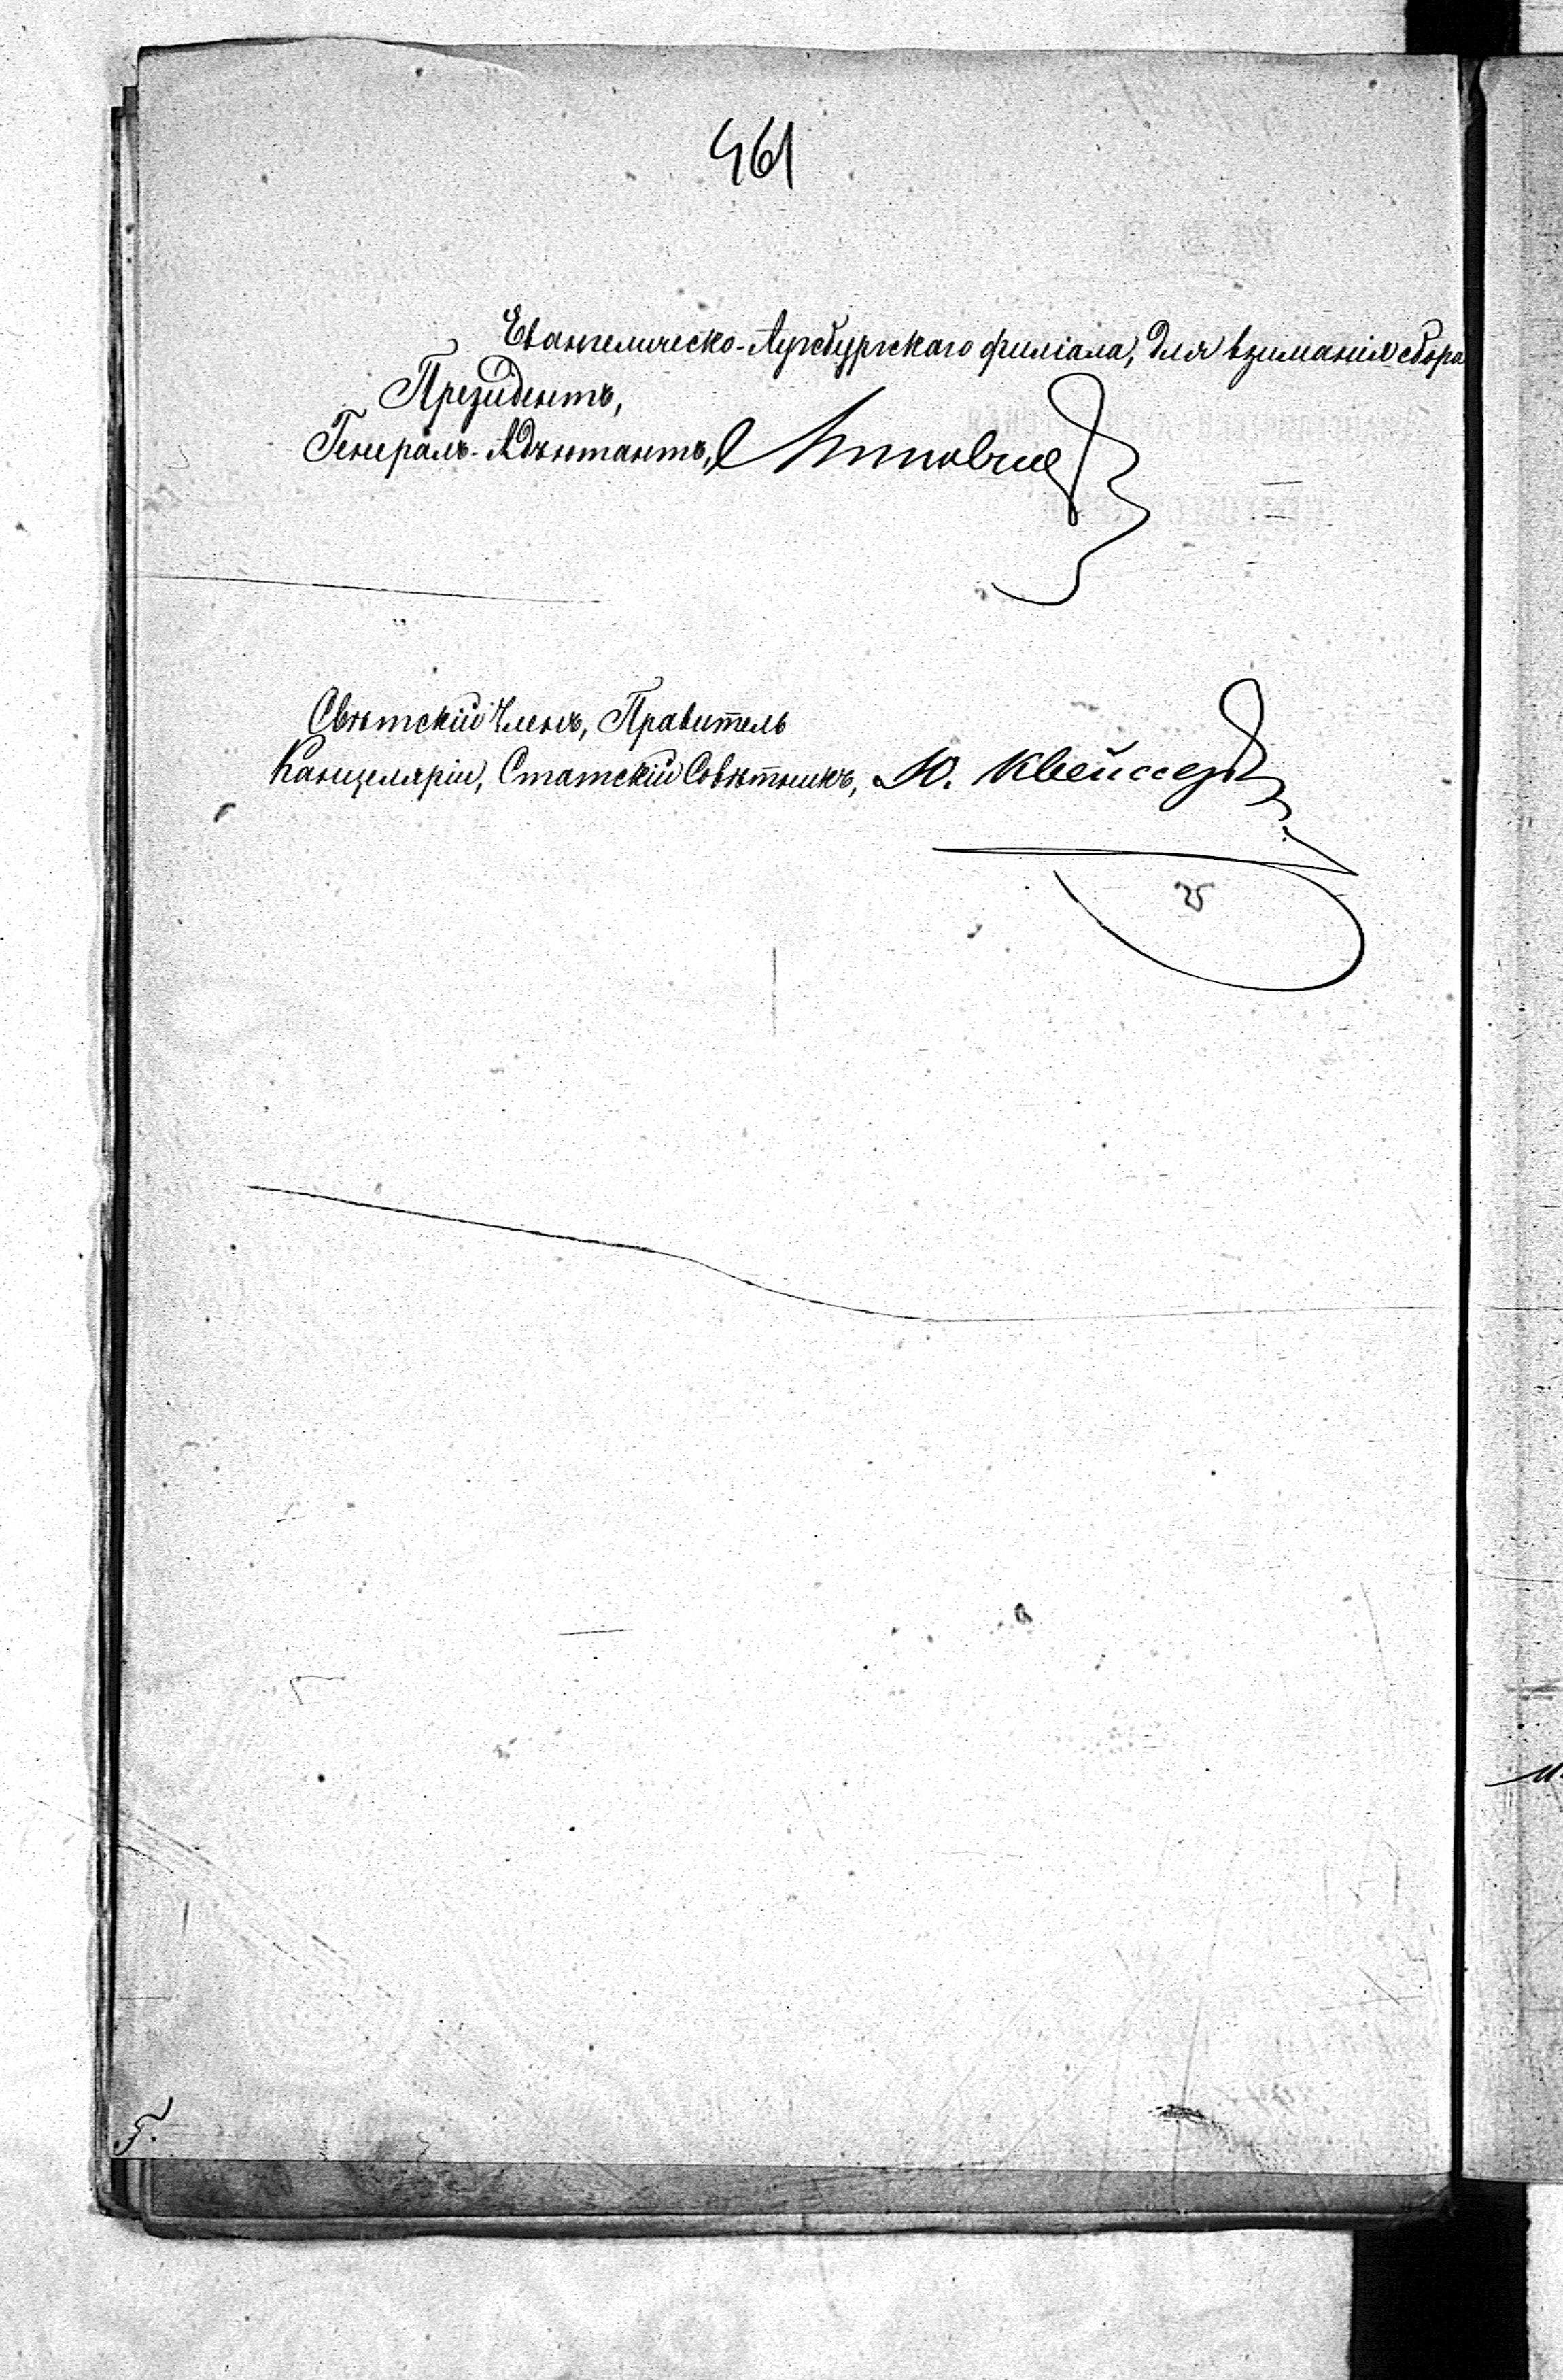 461
Евангелическо-Аугсбургскаго филіала, для взиманія сбора
Президентъ,
Генералъ-Адъютантъ,
Свѣтскій Членъ, Правитель
Канцеляріи, Статскій Совѣтникъ, Ю.
Г.